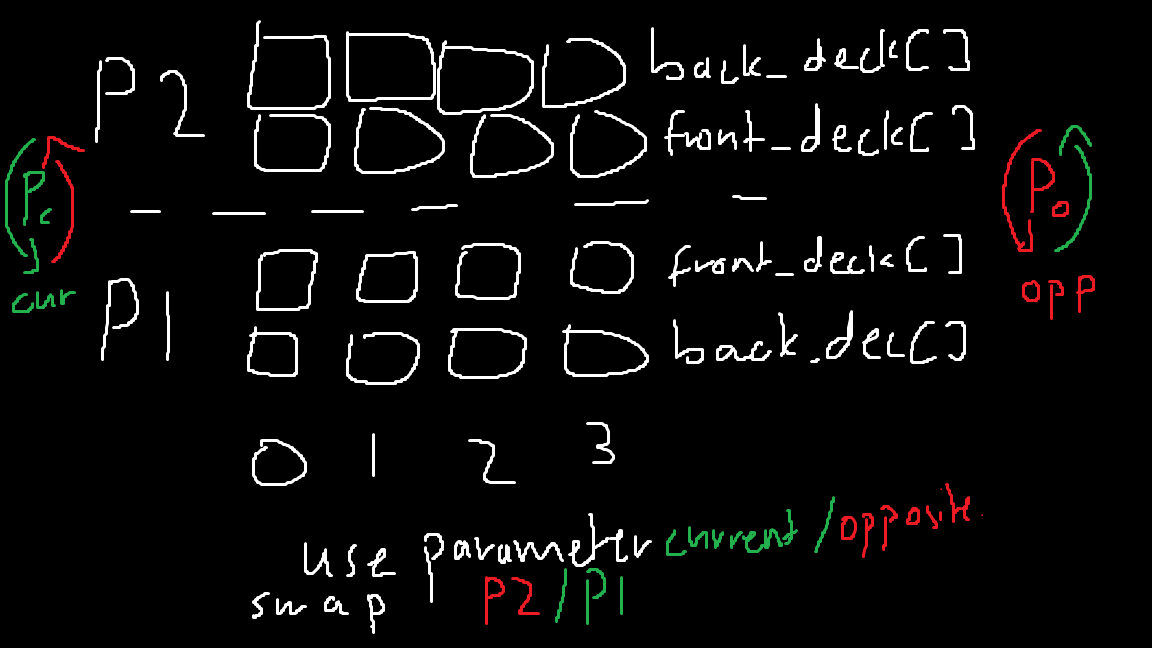 P2
back_deck[]
front_deck[]
Pc
cur
Po
opp
P1
front_deck[]
back.dec[]
0 1 2 3
use parameter current/opposite
swap P2/P1